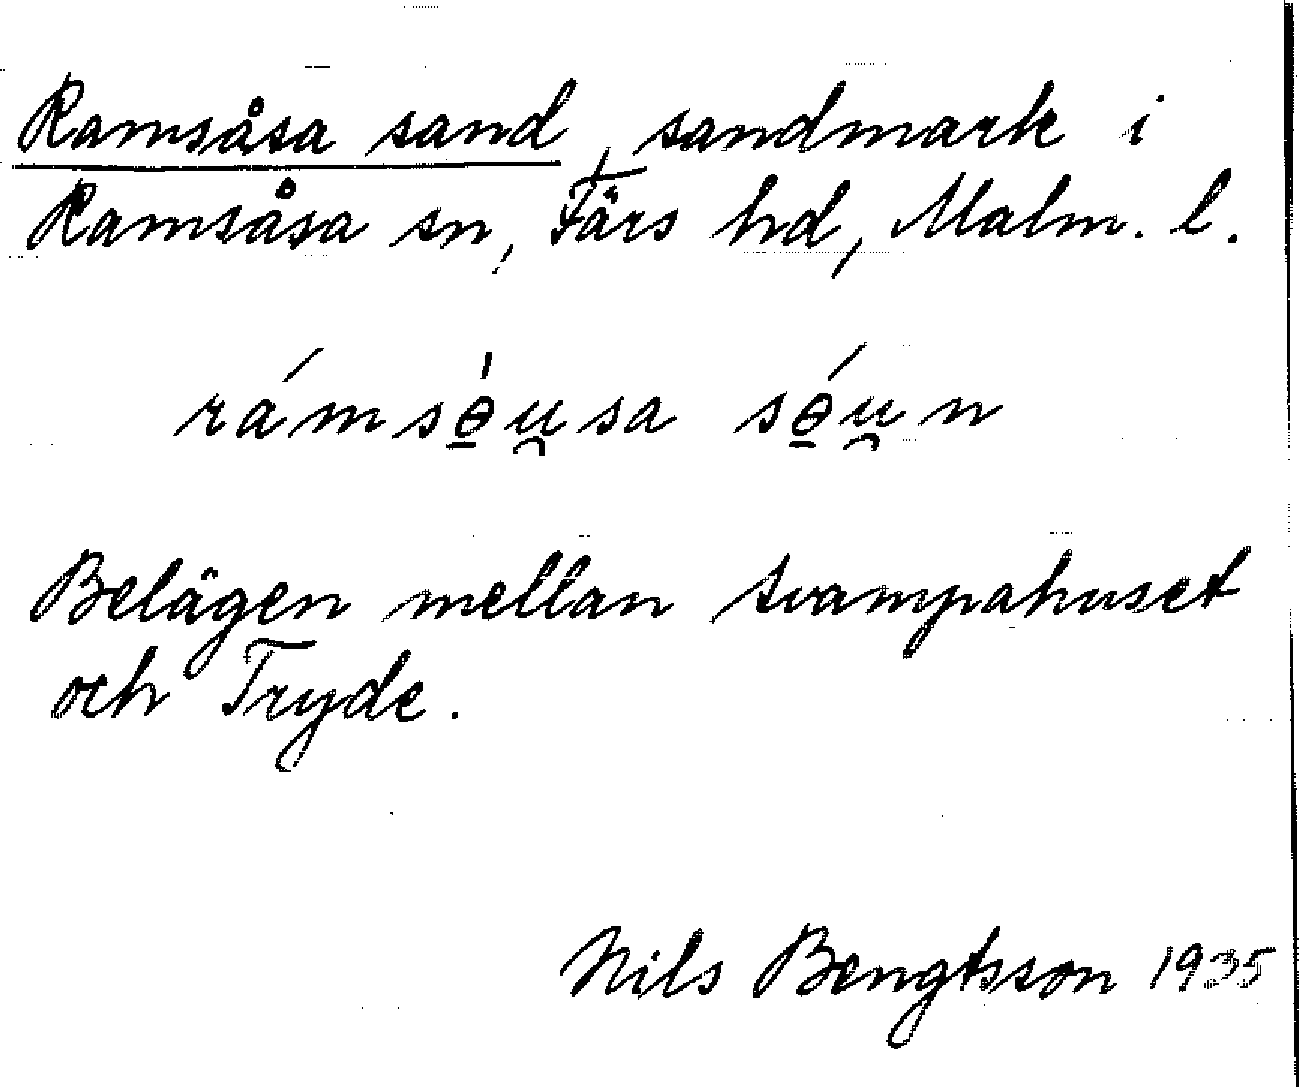 Ramsåsa sand, sandmark i
Ramsåsa sn, Färs hd, Malm. l.
rámsɵ̠́u̯sa sɵ̠́u̯n
Belägen mellan svampahuset
och Tryde.
Nils Bengtsson 1935